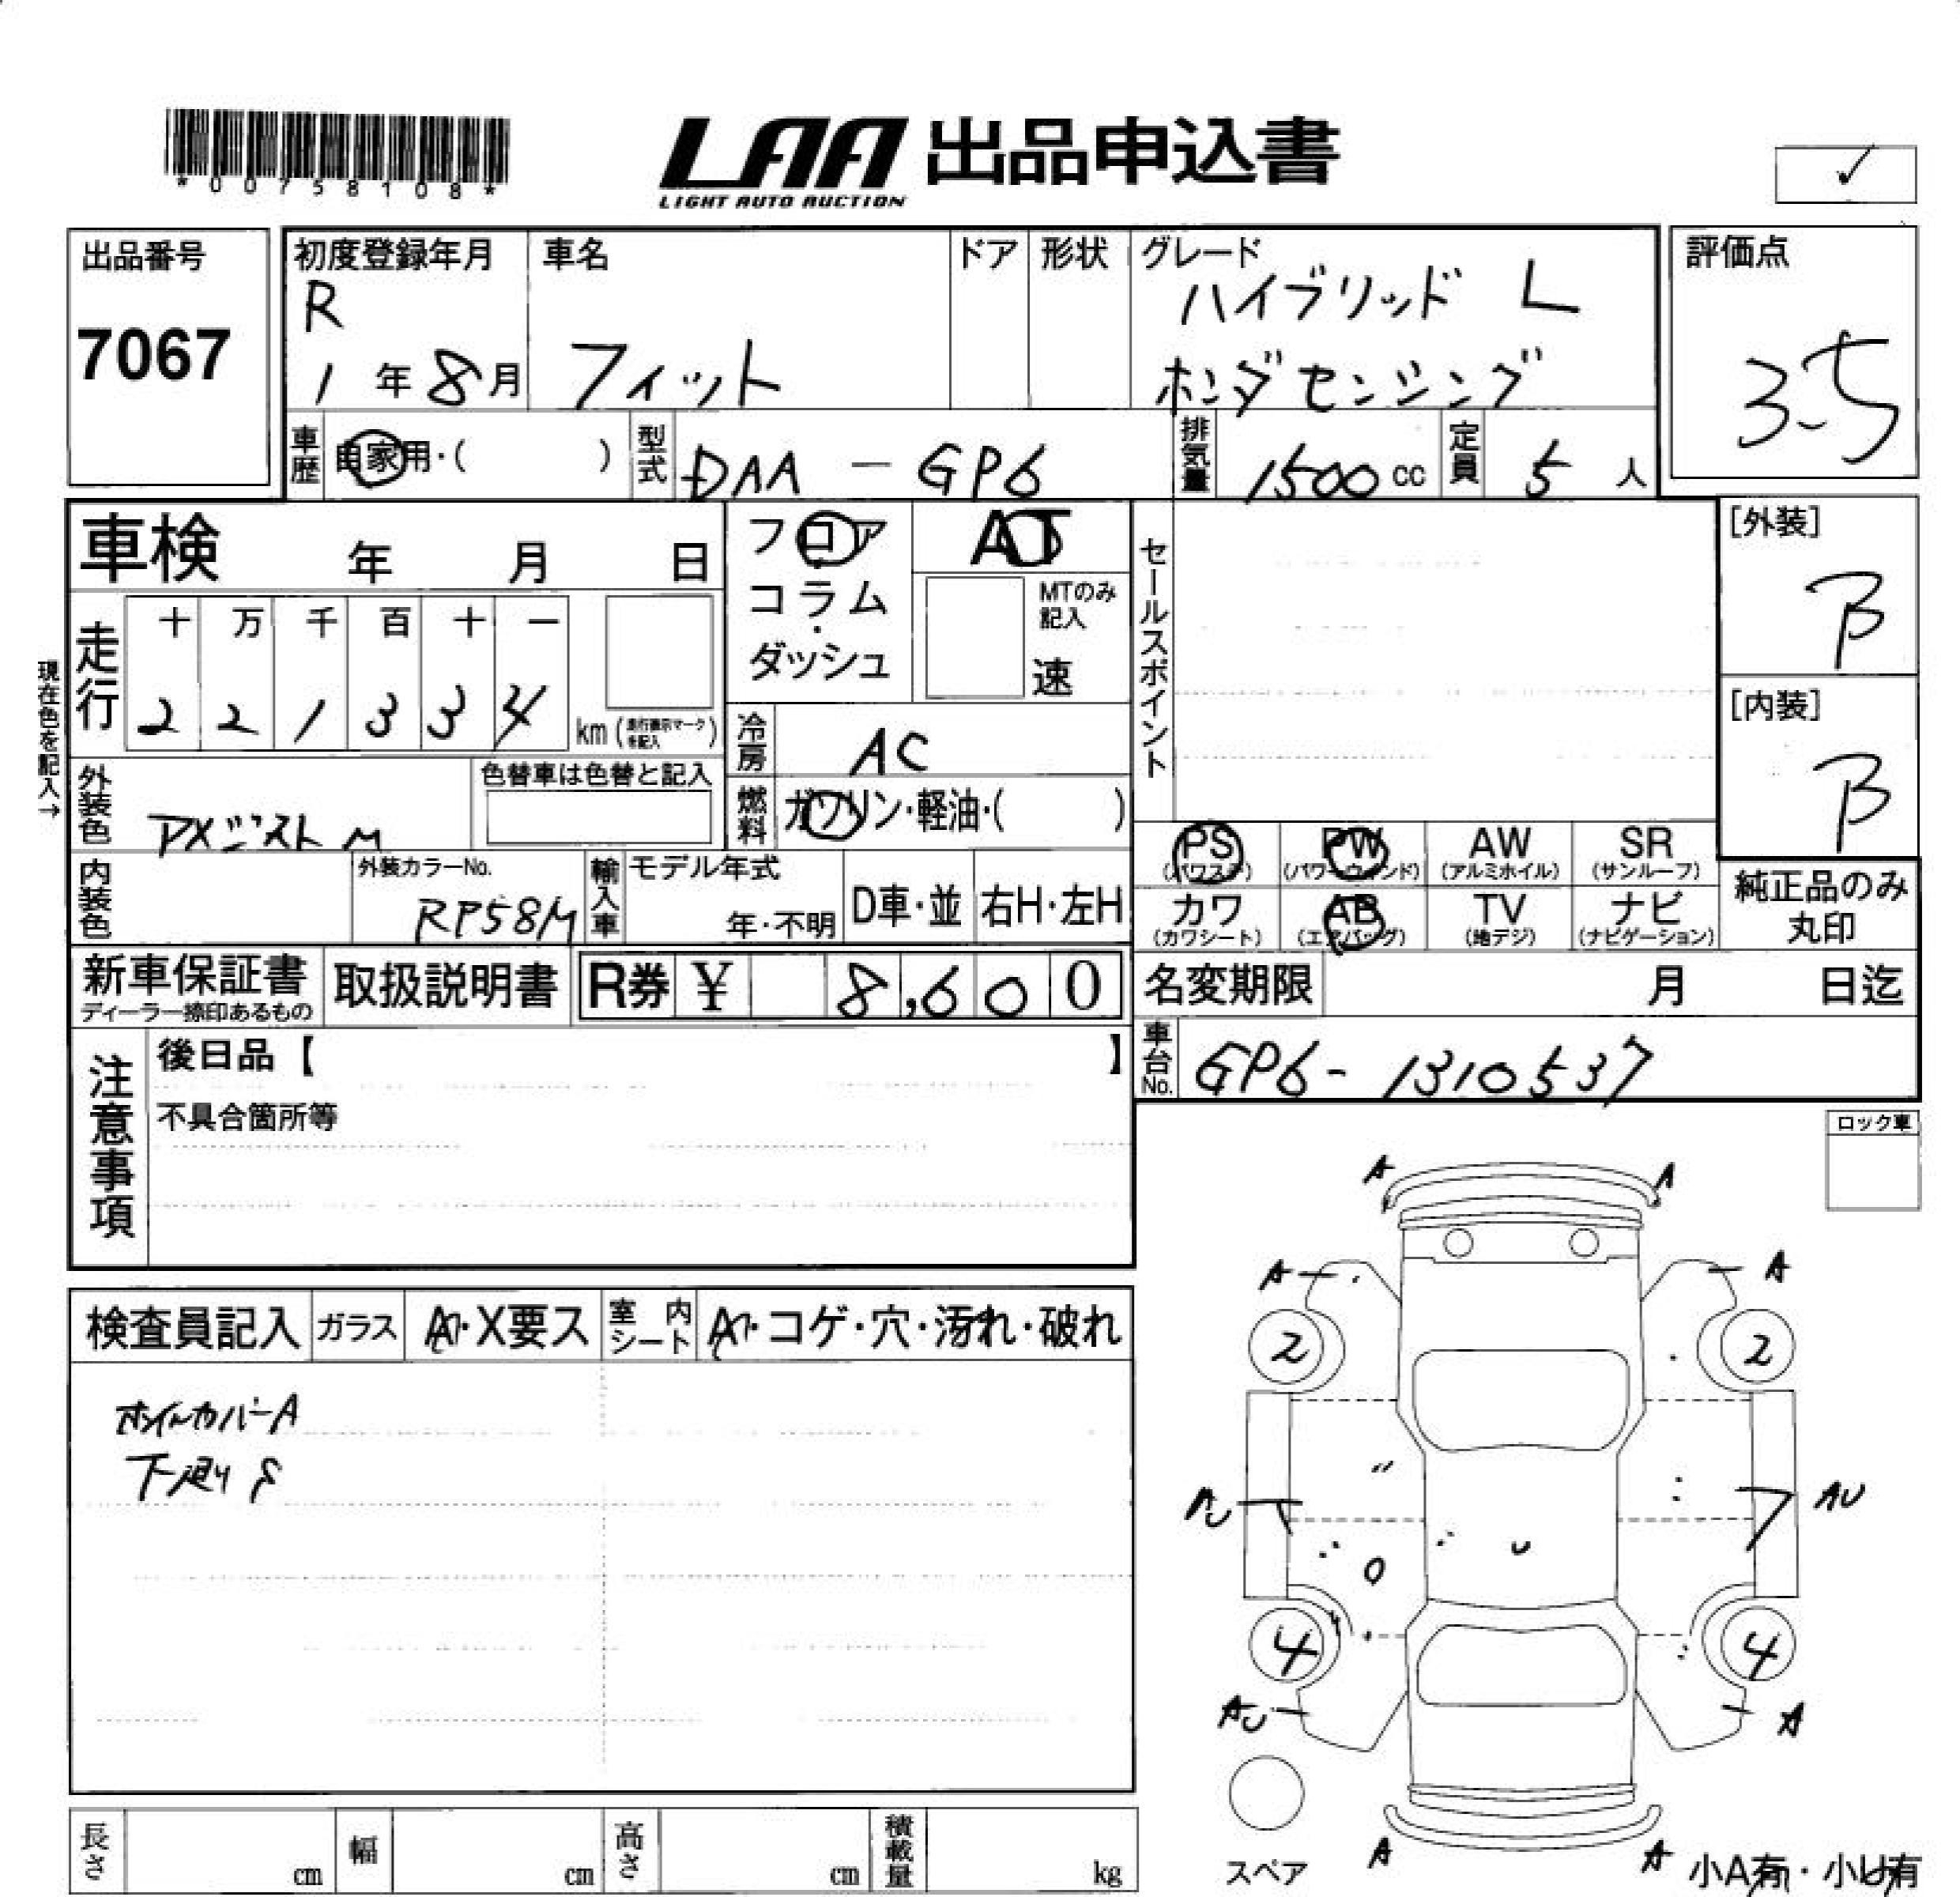 *00758108*
LAA 出品申込書
LIGHT AUTO AUCTION
✓
出品番号
7067
初度登録年月
R
1 年 8 月
車名
フィット
ドア
形状
グレード
ハイブリッド L
ホンダセンシング
評価点
3.5
車歴
自家用・( )
型式
DAA - GP6
排気量
1500 cc
定員
5 人
車検 年 月 日
フロア
コラム
・
ダッシュ
AT
MTのみ
記入
速
セールスポイント
[外装]
B
[内装]
B
現在色を記入→
走行
十 万 千 百 十 一
2 2 1 3 3 4
km (走行表示マークを記入)
冷房
AC
燃料
ガソリン・軽油・( )
外装色
M
色替車は色替と記入
内装色
外装カラーNo.
RP58M
輸入車
モデル年式
年・不明
D車・並
右H・左H
PS
(パワステ)
PW
(パワーウィンド)
AW
(アルミホイル)
SR
(サンルーフ)
カワ
(カワシート)
AB
(エアバッグ)
TV
(地デジ)
ナビ
(ナビゲーション)
純正品のみ
丸印
新車保証書
ディーラー捺印あるもの
取扱説明書
R券 ¥ 8,600
名変期限 月 日迄
車台No.
GP6-1310537
注意事項
後日品【 】
不具合箇所等
ロック車
検査員記入
ガラス
・X要ス
室内
シート
・コゲ・穴・汚れ・破れ
ホイルカバーA
下廻りS
A A
A A
2 2
AU AU
4 4
AU A
スペア
A A
小A有・小U有
長さ cm
幅 cm
高さ cm
積載量 kg